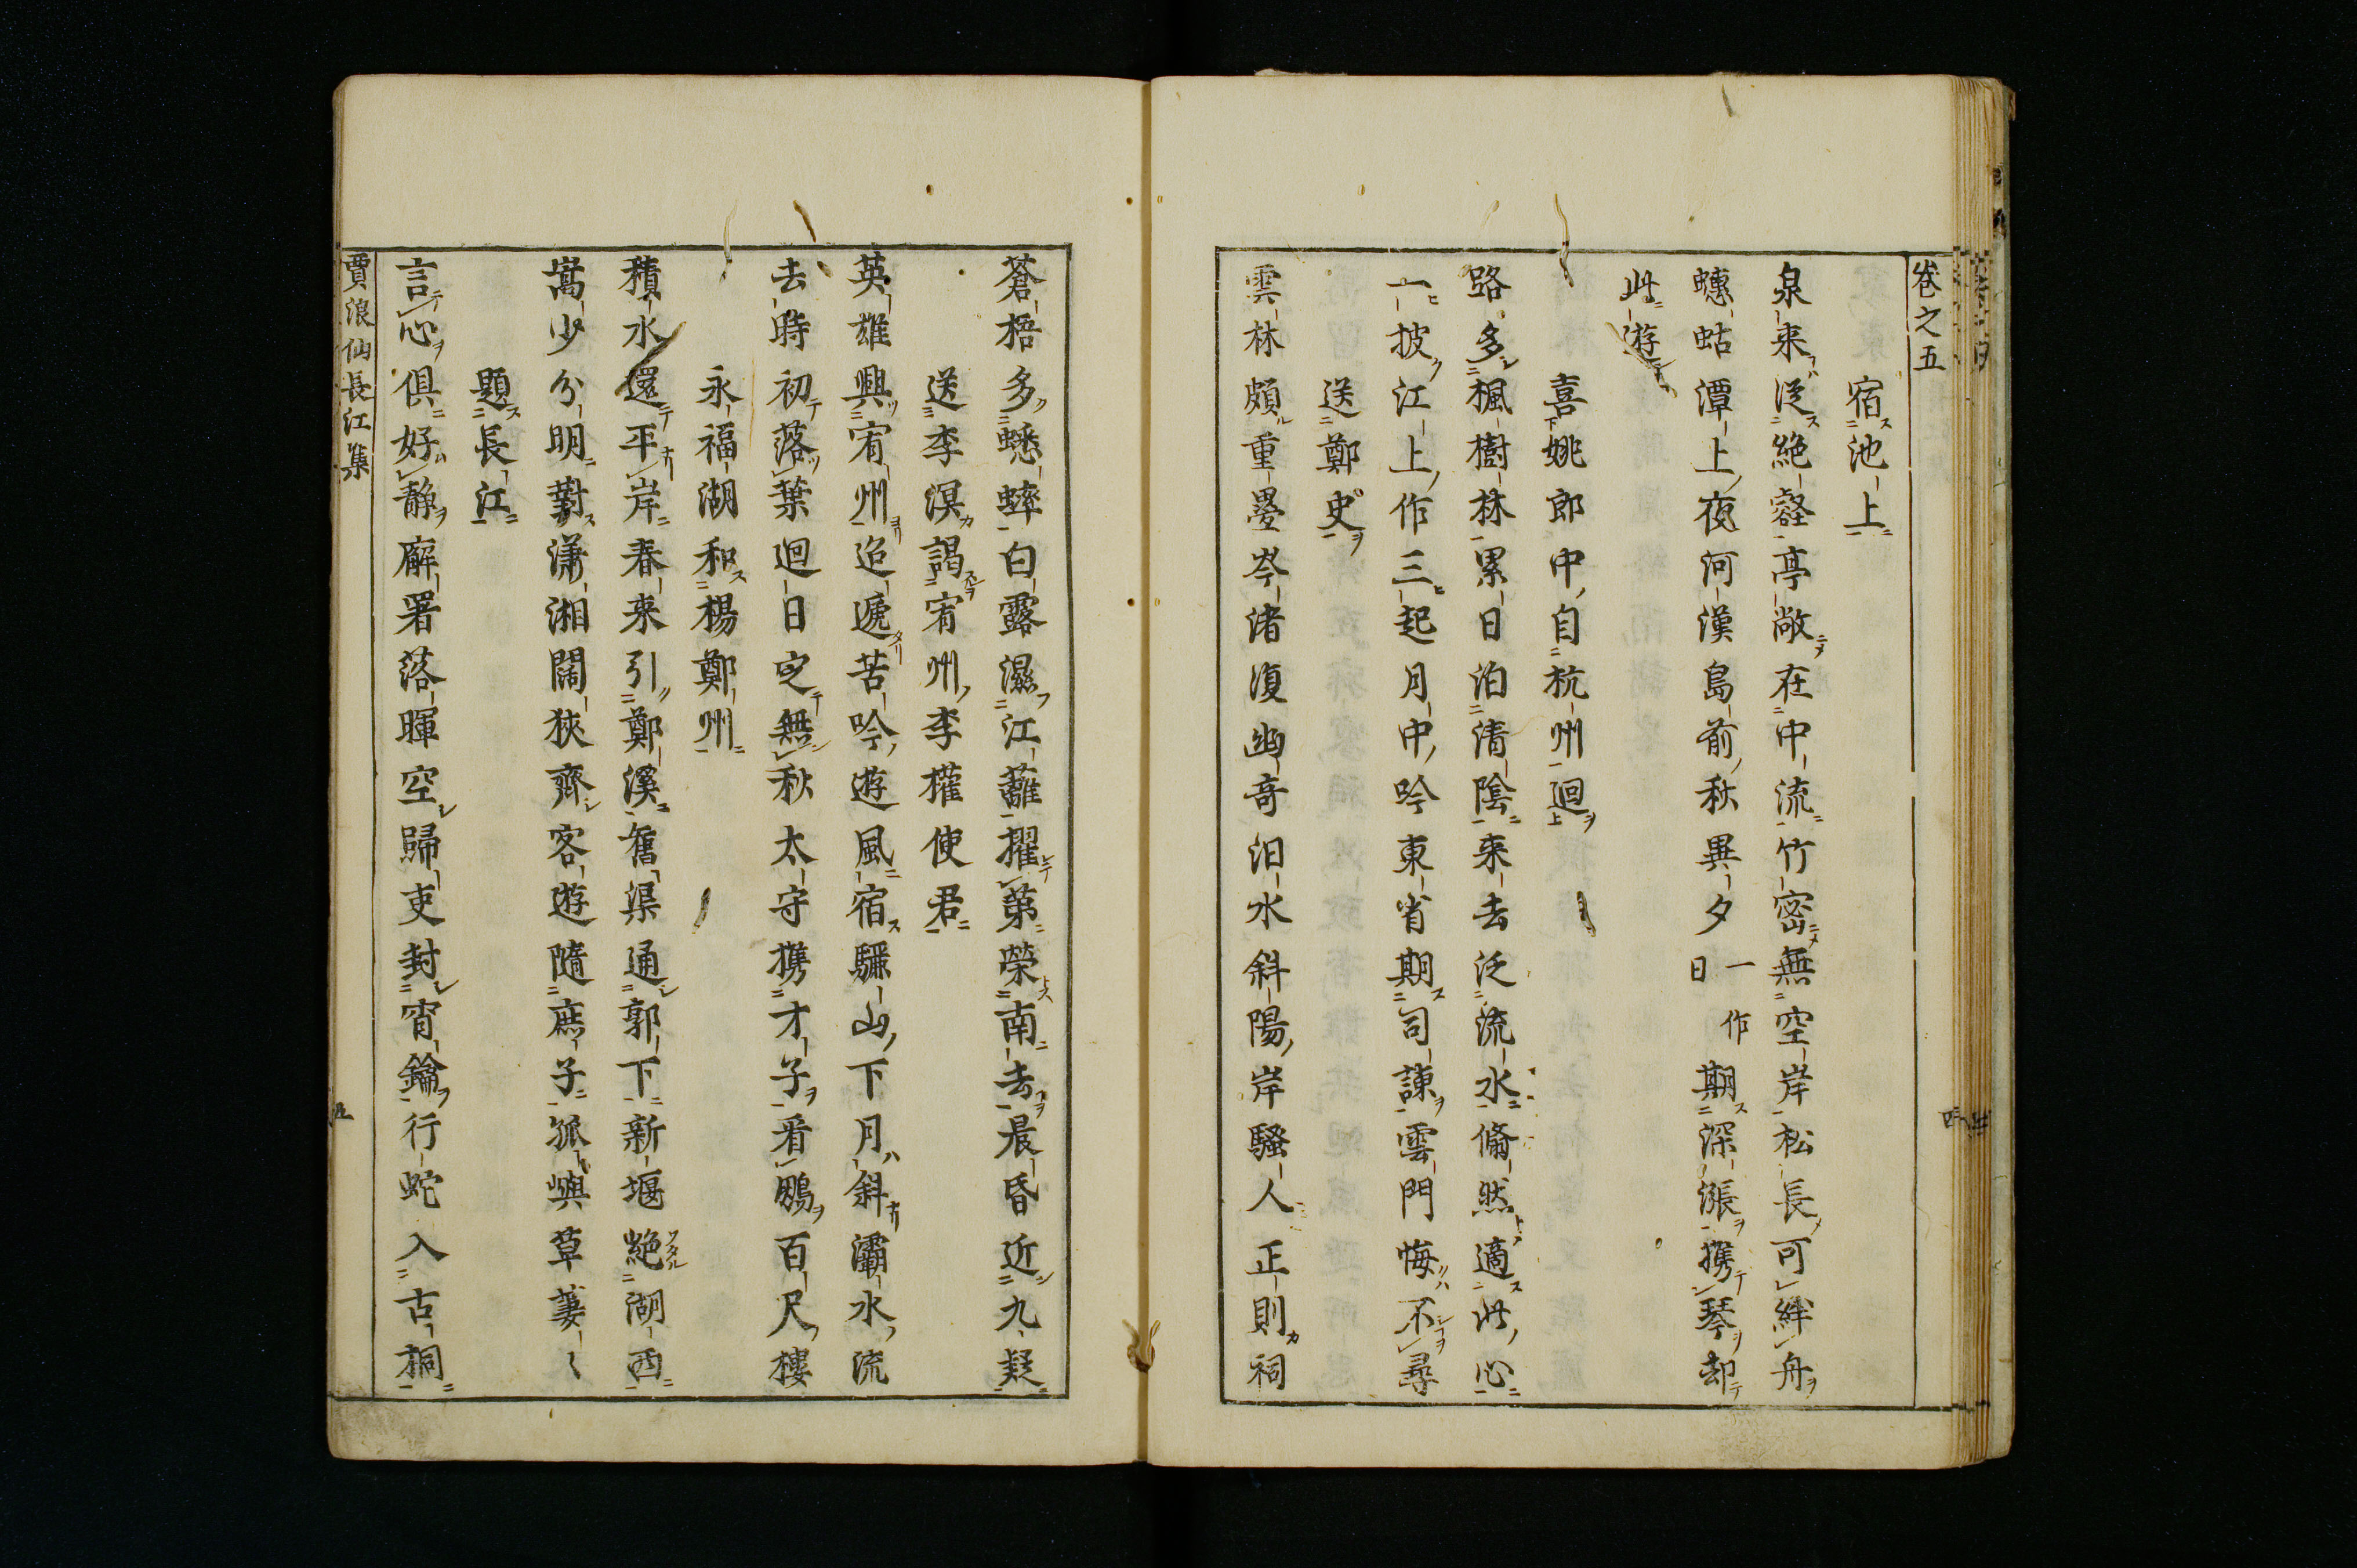 卷之五
宿池上
泉来從絶壑亭敞在中流竹密無空岸松長可絆舟
蟪蛄潭上夜河漢島前秋異夕一作日期深漲攜琴却
此遊
喜姚郎中自杭州迴
路多楓樹林累日泊清陰来去泛流水翛然適此心
一披江上作三起月中吟東省期司諫雲門悔不尋
送鄭史
雲林頗重疊岑渚復幽奇汨水斜陽岸騷人正則祠
蒼梧多蟋蟀白露濕江蘺擢第榮南去晨昏近九疑
送李溟謁宥州李權使君
英雄興宥州迢遞苦吟遊風宿驪山下月斜灞水流
去時初落葉迴日定無秋太守攜才子看鵬百尺樓
永福湖和楊鄭州
積水還平岸春来引鄭溪舊渠通郭下新堰絶湖西
嵩少分明對瀟湘闊狹齊客遊隨庶子孤嶼草萋〱
題長江
言心俱好靜廨署落暉空歸吏封宵鑰行蛇入古桐
賈浪仙長江集